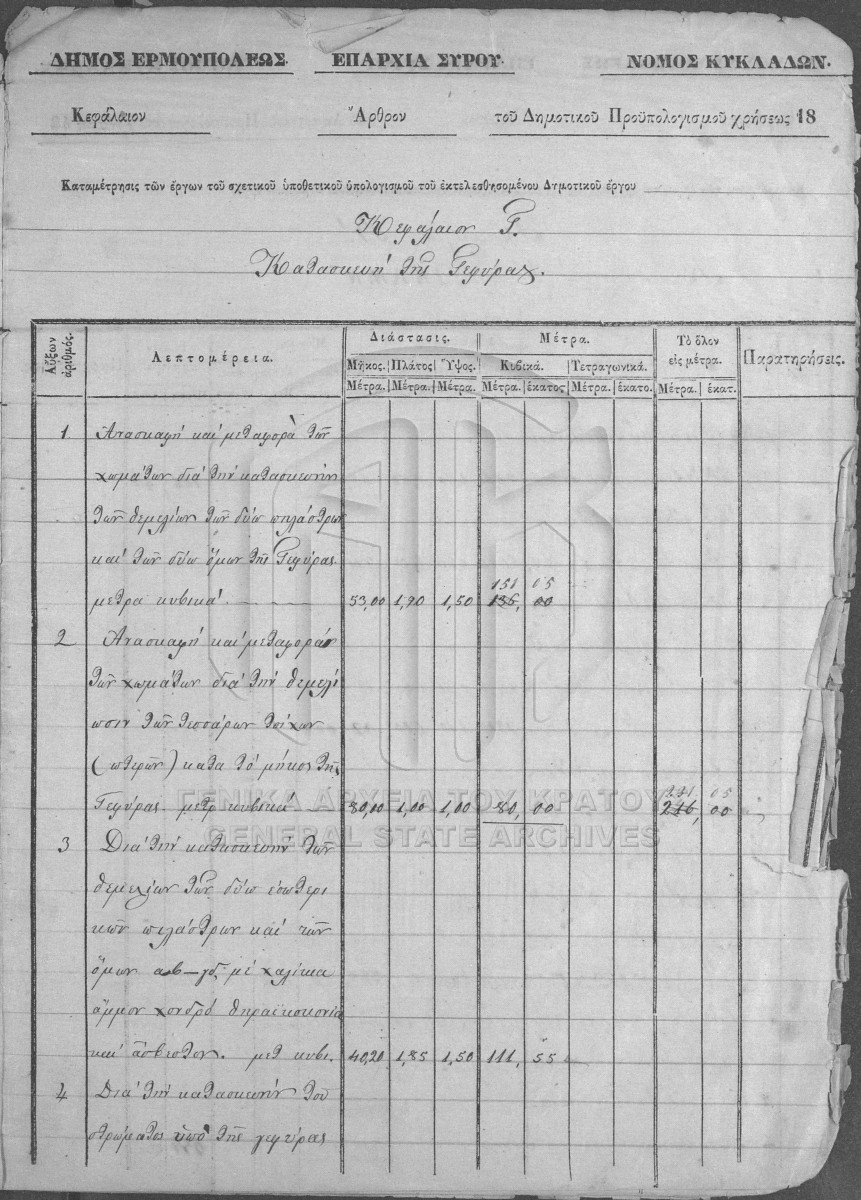 ΔΗΜΟΣ ΕΡΜΟΥΠΟΛΕΩΣ. ΕΠΑΡΧΙΑ ΣΥΡΟΥ. ΝΟΜΟΣ ΚΥΚΛΑΔΩΝ.
Κεφάλαιον Ἄρθρον τοῦ Δημοτικοῦ Προϋπολογισμοῦ χρήσεως 18
Καταμέτρησις τῶν ἔργων τοῦ σχετικοῦ ὑποθετικοῦ ὑπολογισμοῦ τοῦ ἐκτελεσθησομένου Δημοτικοῦ ἔργου
Κεφάλαιον Γ.
Κατασκευή τῆς Γεφύρας.
Αὔξων ἀριθμός. Λεπτομέρεια. Διάστασις. Μέτρα. Τὸ ὅλον εἰς μέτρα. Παρατηρήσεις.
Μῆκος. Πλάτος Ὕψος. Κυβικά. Τετραγωνικά.
Μέτρα. Μέτρα. Μέτρα. Μέτρα. ἑκατος Μέτρα. ἑκατο. Μέτρα. ἑκατ.
1 Ανασκαφή και μεταφορὰ τῶν
χωμάτων διά την κατασκευήν
τῶν θεμελίων τῶν δύω πιλάστρων
και τῶν δύω ὅμων τῆς Γεφύρας
151 05
μετρα κυβικά. 53,00 1,90 1,50 136, 00
2 Ανασκαφή και μεταφοράν
τῶν χωμάτων διά την θεμελί
ωσιν τῶν τεσσάρων τοίχων
(πτερῶν) κατα τό μῆκος τῆς
231 05
Γεφύρας μετρ κυβικά 80,00 1,00 1,00 80, 00 216, 00
3 Διά την κατασκευήν τῶν
θεμελίων τῶν δύω εσωτερι
κῶν πιλάστρων και των
ὅμων αβ–γδ μέ χαλίκα
ἄμμον χονδρό θηραϊκοκονία
και ἄσβεστον. μετ κυβι. 40,20 1,85 1,50 111, 55
4 Διά την κατασκευήν του
στρώματος ὑπό τῆς γεφύρας
ΓΕΝΙΚΑ ΑΡΧΕΙΑ ΤΟΥ ΚΡΑΤΟΥΣ
GENERAL STATE ARCHIVES